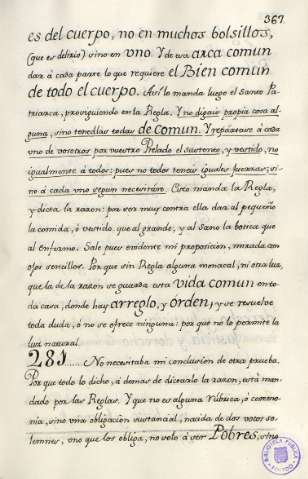 367.
es del cuerpo, no en muchos bolsillos,
(que es delirio) sino en uno. Y de esa arca comun
dar à cada parte lo que requiere el Bien comun
de todo el cuerpo. Asi lo manda luego el Santo Pa-
triarca, prosiguiendo en la Regla. Y no digais propia cosa al-
guna, sino tenedlas todas de comun. Y repartase à cada
uno de vosotros por vuestro Prelado el sustento, y vestido, no
igualmente à todos: pues no todos teneis iguales fuerzas; si-
nò à cada uno segun necesitàre. Esto manda la Regla,
y dicta la razon: por ser muy contra ella dar al pequeño
la comida, ò vestido que al grande, y al sano la botica que
al enfermo. Sale pues evidente mi proposicion, mirada con
ojos sencillos. Por que sin Regla alguna monacal, ni otra luz,
que la de la razòn se guarda esta vida comun en to-
da casa, donde hay arreglo, y orden, y se resuelve
toda duda, ò no se ofrece ninguna: por que no lo permite la
luz natural.
281...... No necesitaba mi conclusion de otra prueba.
Por que todo lo dicho, à demas de dictarlo la razon, està man-
dado por las Reglas. Y que no es alguna rùbrica, ò ceremo-
nia, sino una obligaciòn sustancial, nacida de dos votos so-
lemnes, uno que los obliga, no solo à ser Pobres, sino